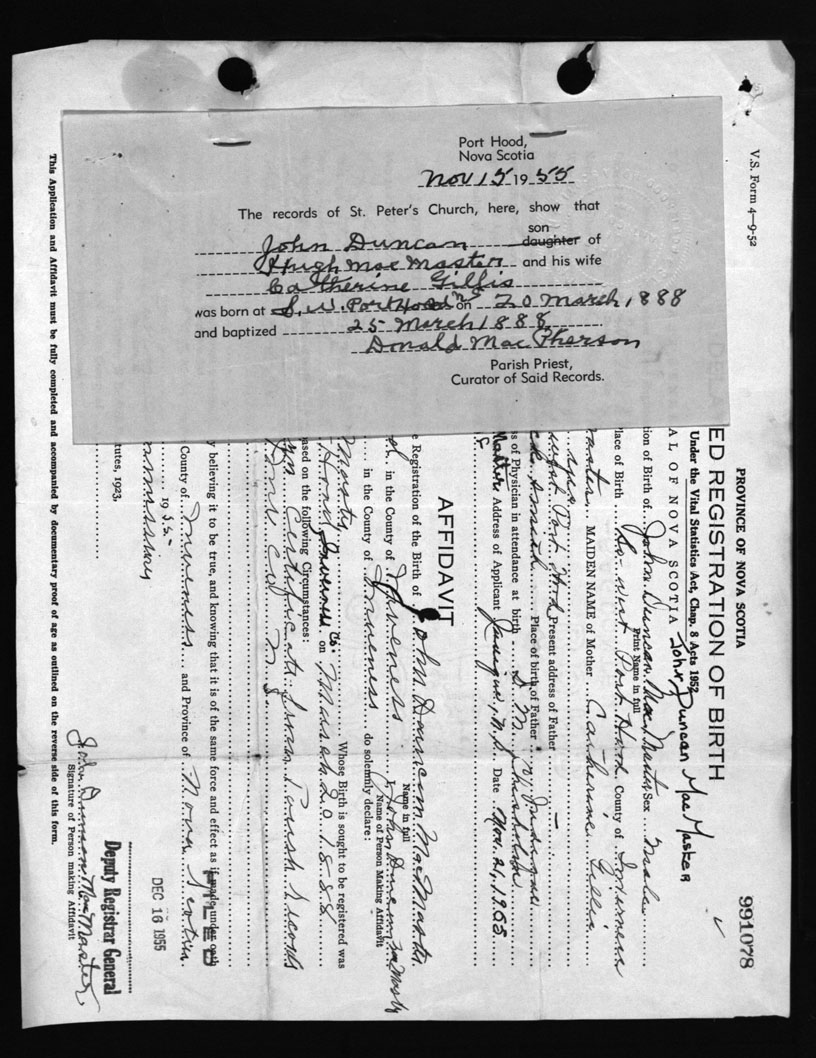 Port Hood,
Nova Scotia
Nov 15 1955
The records of St. Peter's Church, here, show that
son
John Duncan daughter of
Hugh MacMaster and his wife
Catherine Gillis
was born at S.W. Port Hood on 20 March 1888
and baptized 25 March 1888
Donald MacPherson
Parish Priest,
Curator of Said Records.
V.S. Form 4—9-52
PROVINCE OF NOVA SCOTIA
991078
ED REGISTRATION OF BIRTH
Under the Vital Statistics Act, Chap. 8 Acts 1952
AL OF NOVA SCOTIA John Duncan MacMaster
tion of Birth of John Duncan MacMaster Sex Male
Print Name in full
lace of Birth So. West Port Hood County of Inverness
Master MAIDEN NAME of Mother Catherine Gillis
west Port Hood Present address of Father —
Smith Place of birth of Father Judique
s of Physician in attendance at birth
Master Address of Applicant Judique, N.S. Date Nov. 21, 1955.
AFFIDAVIT
e Registration of the Birth of John Duncan MacMaster
Name in full
in the County of Inverness I, John Duncan MacMaster
Name of Person Making Affidavit
in the County of Inverness do solemnly declare:
Master Whose Birth is sought to be registered was
Hood Inverness Co. on March 20 1888
ased on the following Circumstances:
Certificate from Parish Records
y believing it to be true, and knowing that it is of the same force and effect as if made under oath
FILED
County of Inverness and Province of Nova Scotia
1955.
DEC 16 1955
Deputy Registrar General
tutes, 1923.
John Duncan MacMaster
Signature of Person making Affidavit
This Application and Affidavit must be fully completed and accompanied by documentary proof of age as outlined on the reverse side of this form.